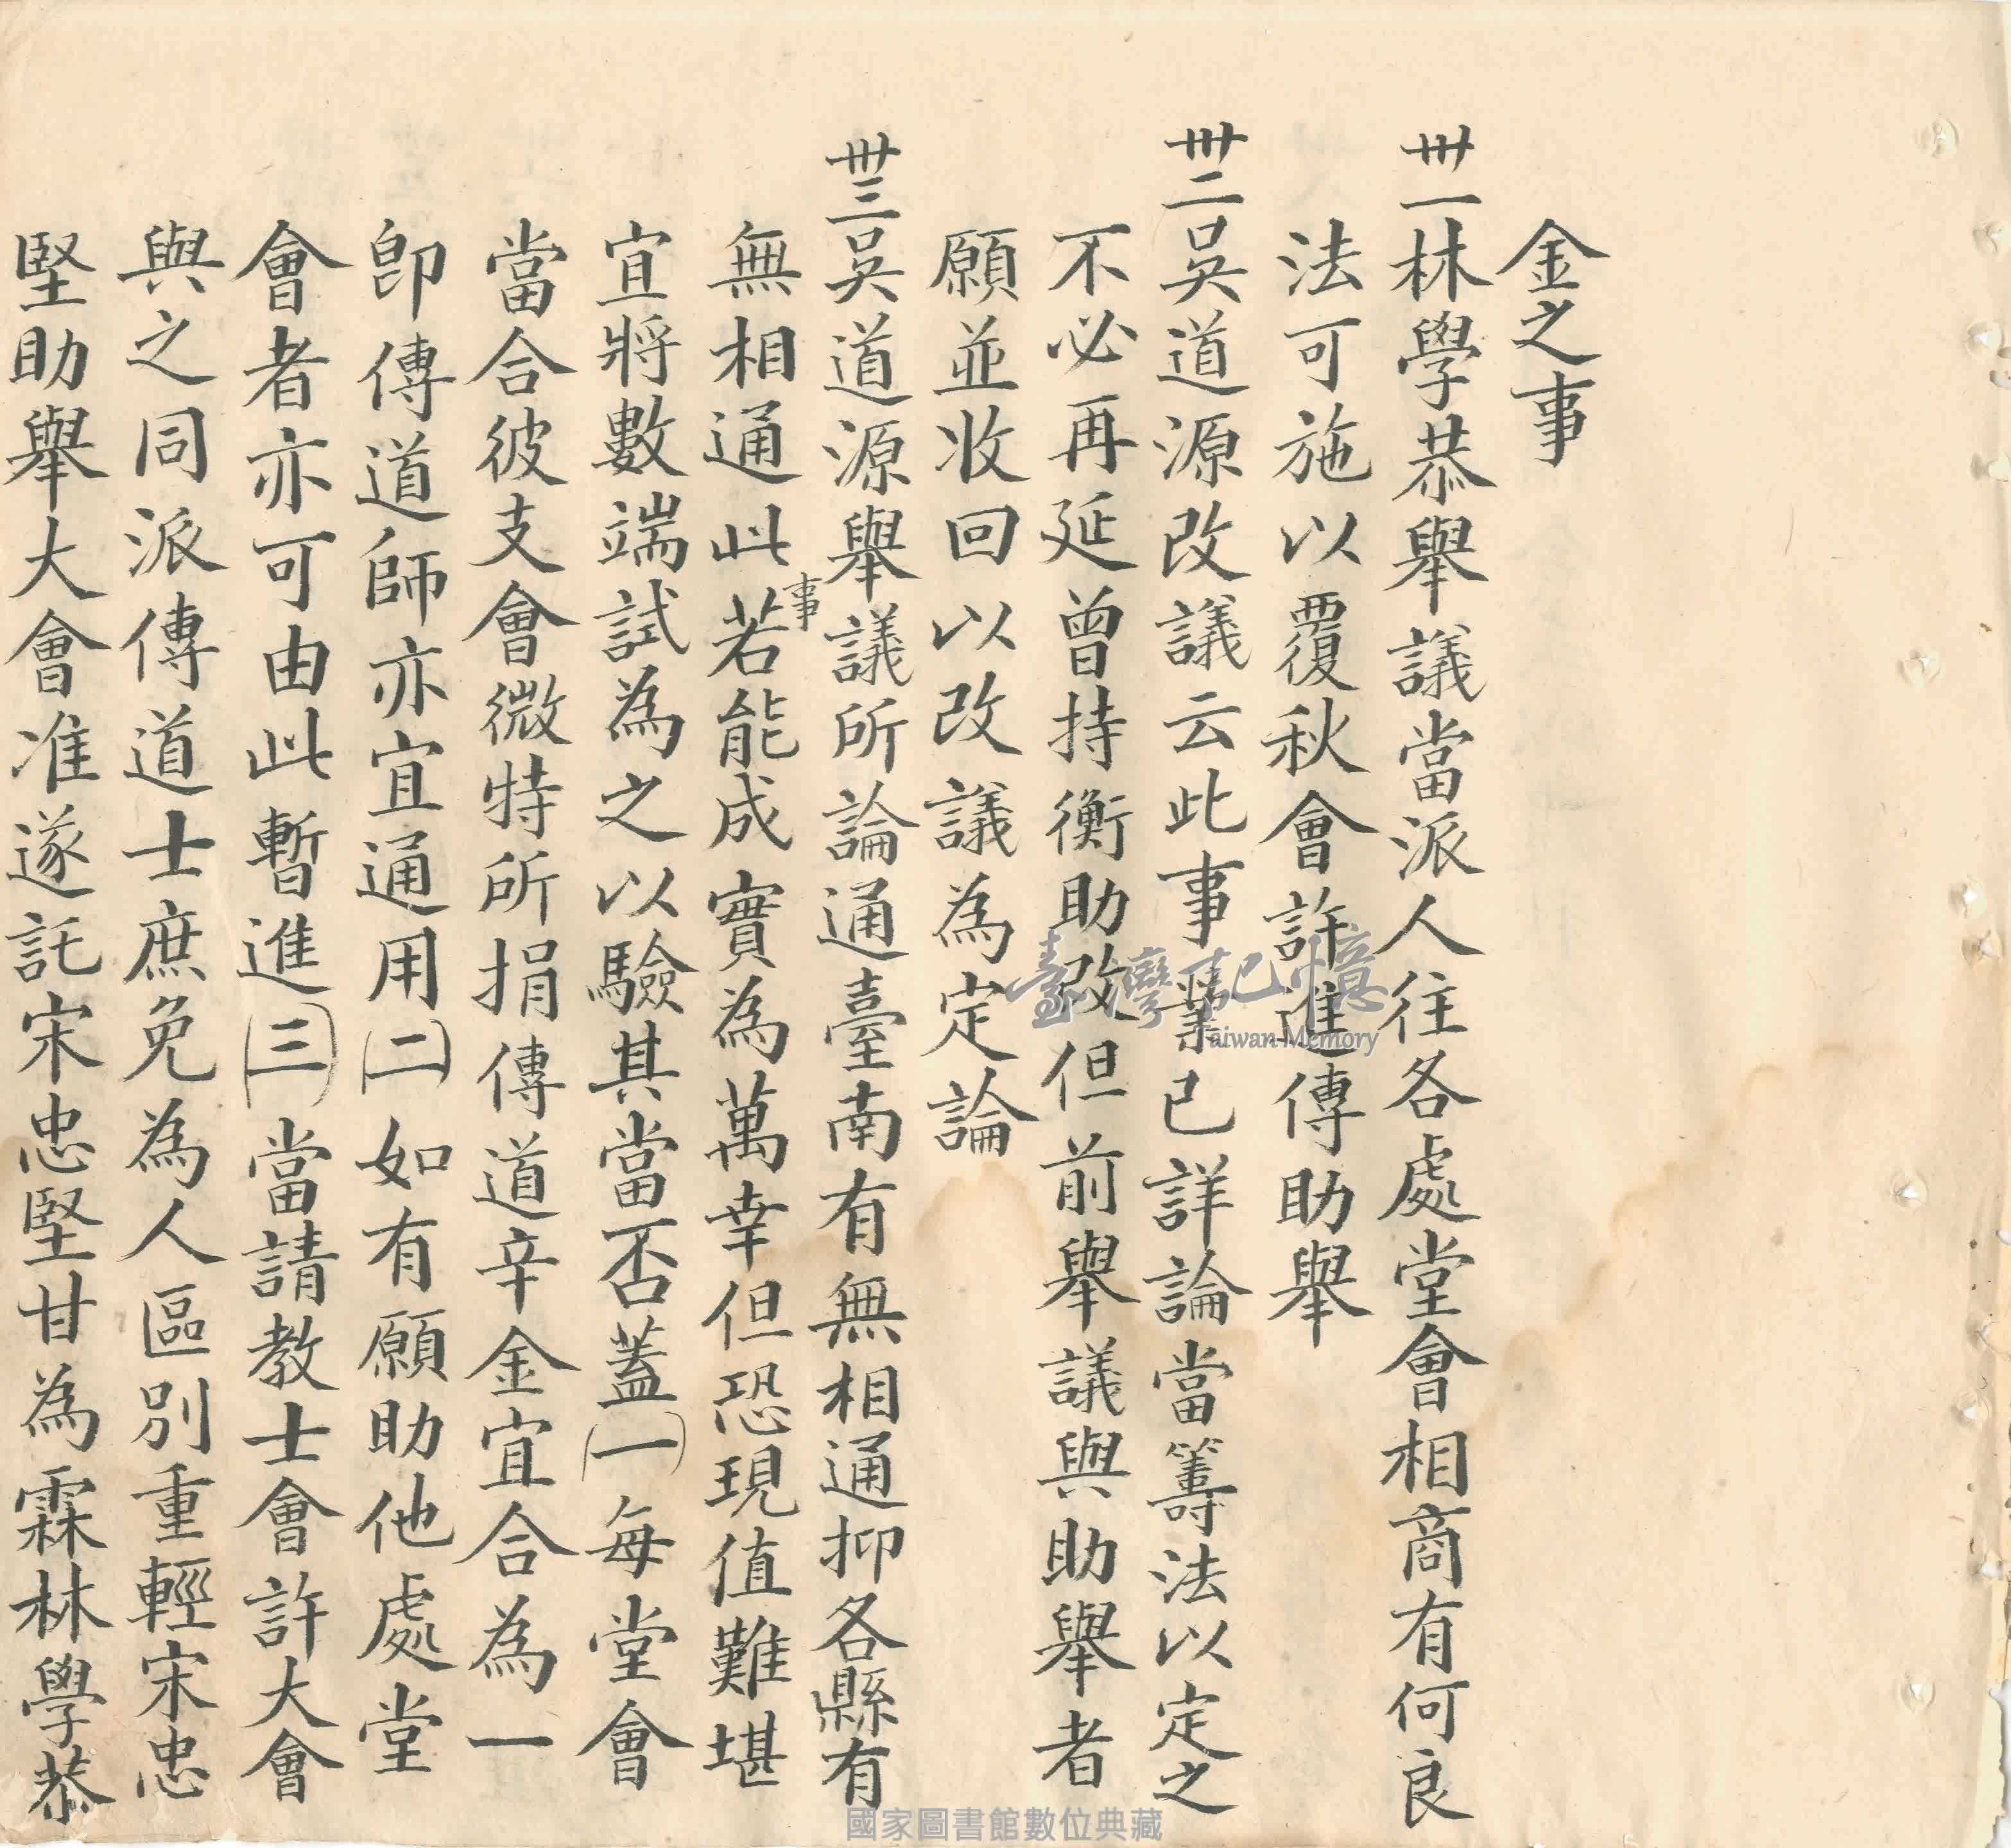 金之事
卅一林學恭舉議當派人往各處堂會相商有何良
法可施以覆秋會許進傳助舉
卅二吳道源改議云此事業已詳論當籌法以定之
不必再延曾持衡助改但前舉議與助舉者
願並收回以改議為定論
卅三吳道源舉議所論通臺南有無相通抑各縣有
無相通此事若能成實為萬幸但恐現值難堪
宜將數端試為之以驗其當否蓋(一)每堂會
當合彼支會微特所捐傳道辛金宜合為一
即傳道師亦宜通用(二)如有願助他處堂
會者亦可由此暫進(三)當請教士會許大會
與之同派傳道士庶免為人區別重輕宋忠
堅助舉大會准遂託宋忠堅甘為霖林學恭
臺灣記憶
Taiwan Memory
國家圖書館數位典藏